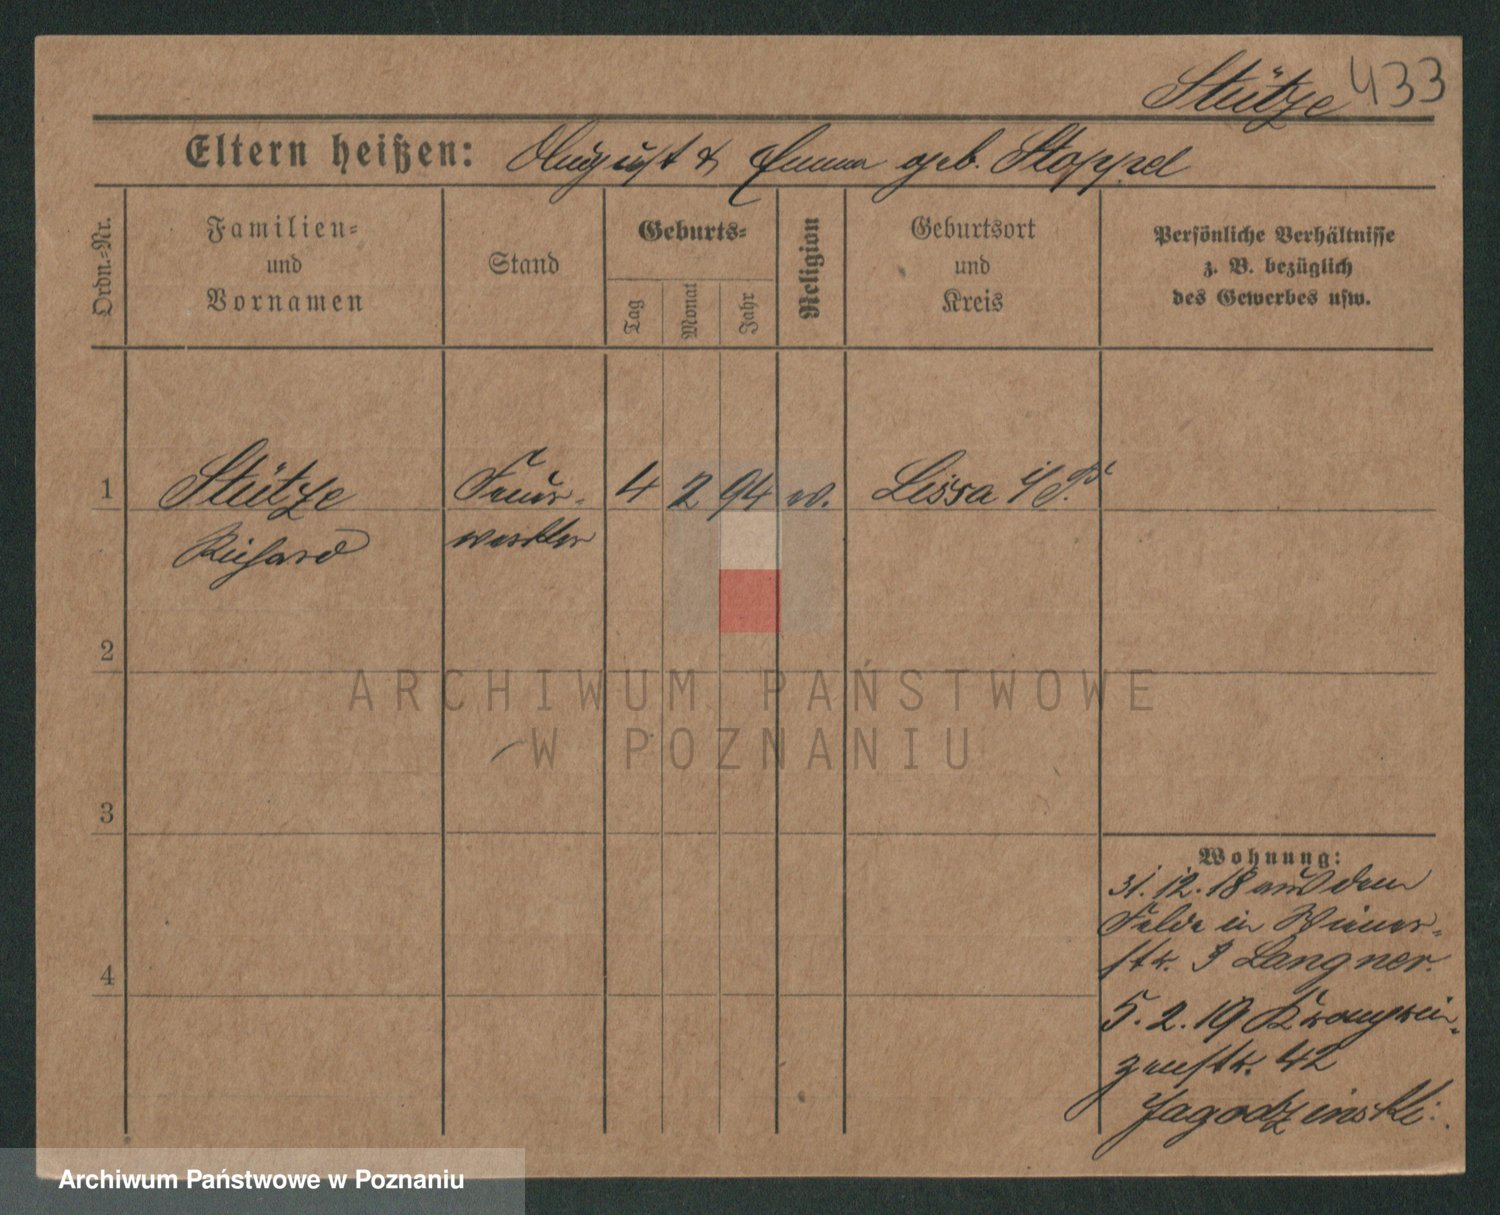 Stütze 433
Eltern heißen: August & Emma geb. Stoppel
Ordn.-Nr.
Familien-
und
Vornamen
Stand
Geburts-
Tag
Monat
Jahr
Religion
Geburtsort
und
Kreis
Persönliche Verhältnisse
z. B. bezüglich
des Gewerbes usw.
1 Stütze Feuer- 4 2 94 ev. Lissa i/P.
Richard werker
2
3
4
ARCHIWUM PAŃSTWOWE
W POZNANIU
Wohnung:
31.12.18 aus dem
Felde in Wiener-
str. 3 Langner.
5.2.19 Kronprin-
zenstr. 42
Jagodzinski.
Archiwum Państwowe w Poznaniu